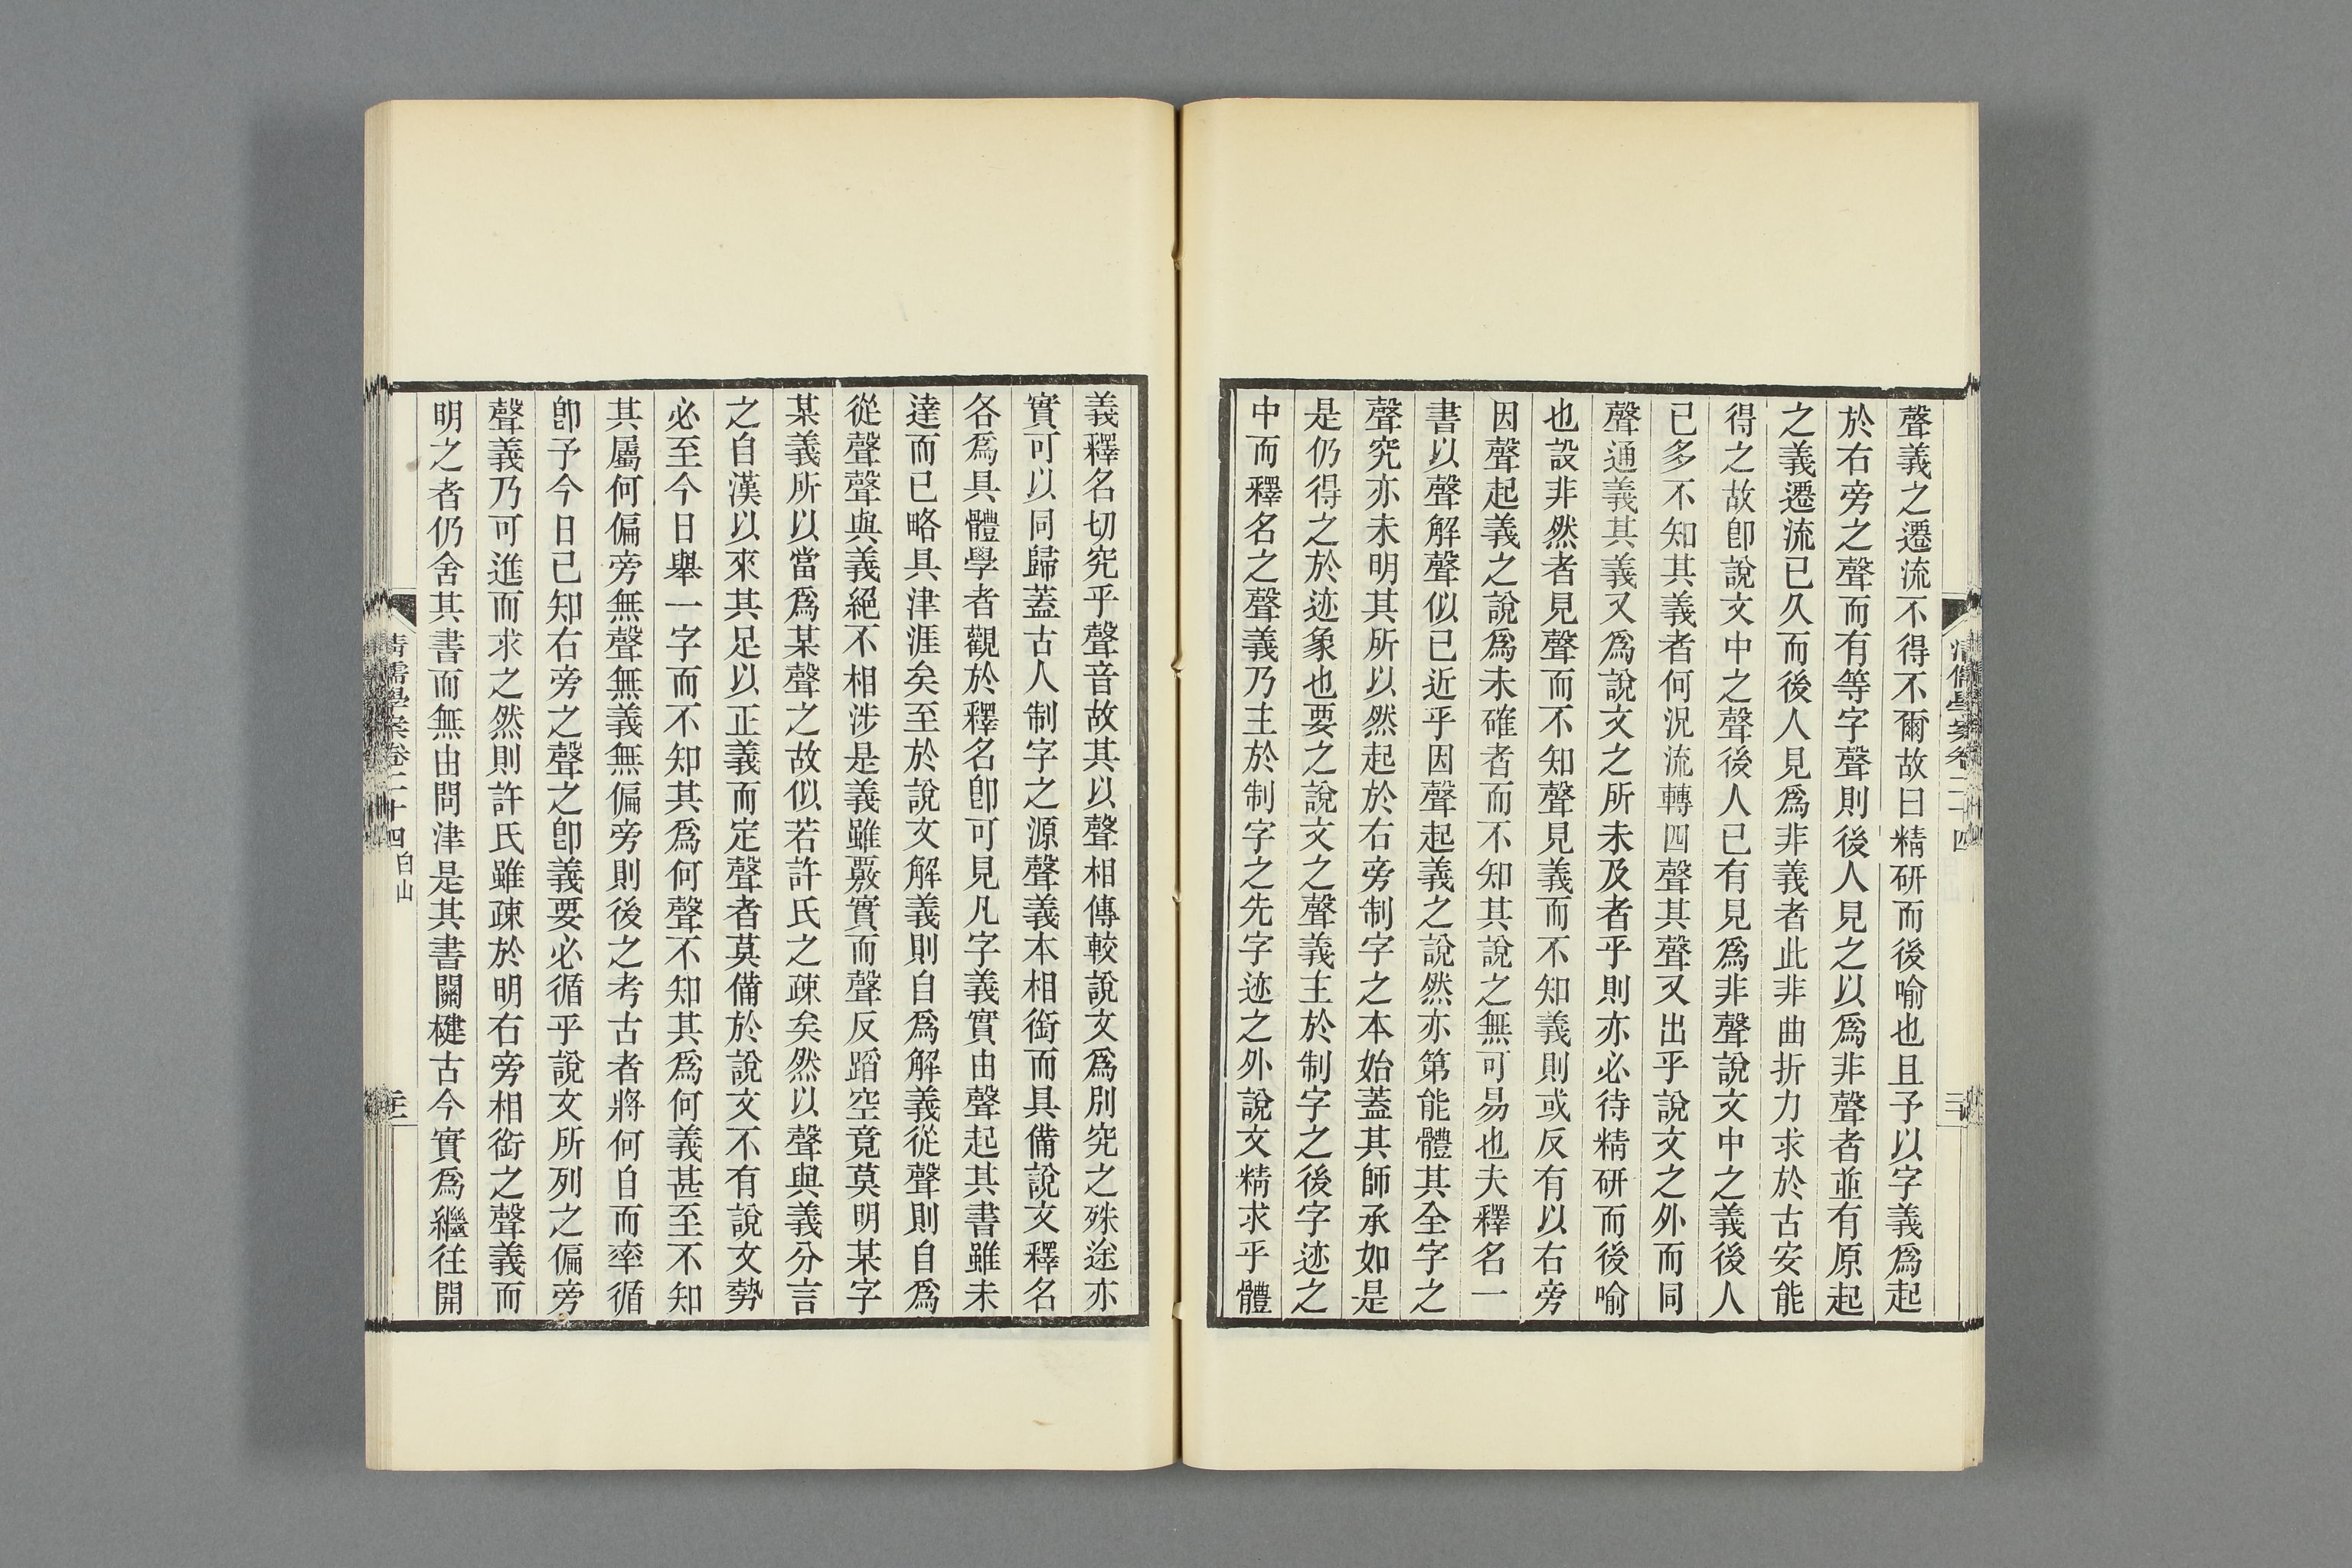 聲義之遷流不得不爾故曰精研而後喻也且予以字義爲起
於右旁之聲而有等字聲則後人見之以爲非聲者並有原起
之義遷流已久而後人見爲非義者此非曲折力求於古安能
得之故卽說文中之聲後人已有見爲非聲說文中之義後人
已多不知其義者何況流轉四聲其聲又出乎說文之外而同
聲通義其義又爲說文之所未及者乎則亦必待精研而後喻
也設非然者見聲而不知聲見義而不知義則或反有以右旁
因聲起義之說爲未確者而不知其說之無可易也夫釋名一
書以聲解聲似已近乎因聲起義之說然亦第能體其全字之
聲究亦未明其所以然起於右旁制字之本始蓋其師承如是
是仍得之於迹象也要之說文之聲義主於制字之後字迹之
中而釋名之聲義乃主於制字之先字迹之外說文精求乎體
義釋名切究乎聲音故其以聲相傳較說文爲別究之殊途亦
實可以同歸蓋古人制字之源聲義本相銜而具備說文釋名
各爲具體學者觀於釋名卽可見凡字義實由聲起其書雖未
達而已略具津涯矣至於說文解義則自爲解義從聲則自爲
從聲聲與義絕不相涉是義雖覈實而聲反蹈空竟莫明某字
某義所以當爲某聲之故似若許氏之疎矣然以聲與義分言
之自漢以來其足以正義而定聲者莫備於說文不有說文勢
必至今日舉一字而不知其爲何聲不知其爲何義甚至不知
其屬何偏旁無聲無義無偏旁則後之考古者將何自而率循
卽予今日已知右旁之聲之卽義要必循乎說文所列之偏旁
聲義乃可進而求之然則許氏雖疎於明右旁相銜之聲義而
明之者仍舍其書而無由問津是其書關楗古今實爲繼往開
清儒學案卷二十四 白山